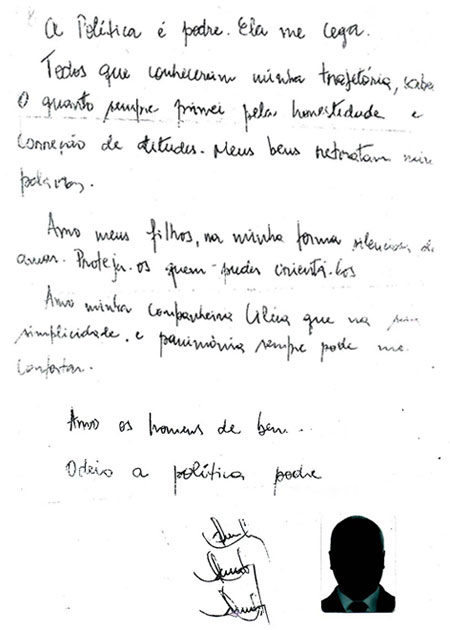 A Política é podre. Ela me cega.
Todos que conheceram minha trajetória, sabe
O quanto sempre primei pela honestidade e
Correção de atitudes. Meus bens retratam
palavras.
Amo meus filhos, na minha forma silenciosa de
amar. Proteja-os quem puder orientá-los
Amo minha companheira que na sua
simplicidade. e parcimônia sempre pode me
confortar.
Amo os homens de bem.
Odeio a política podre